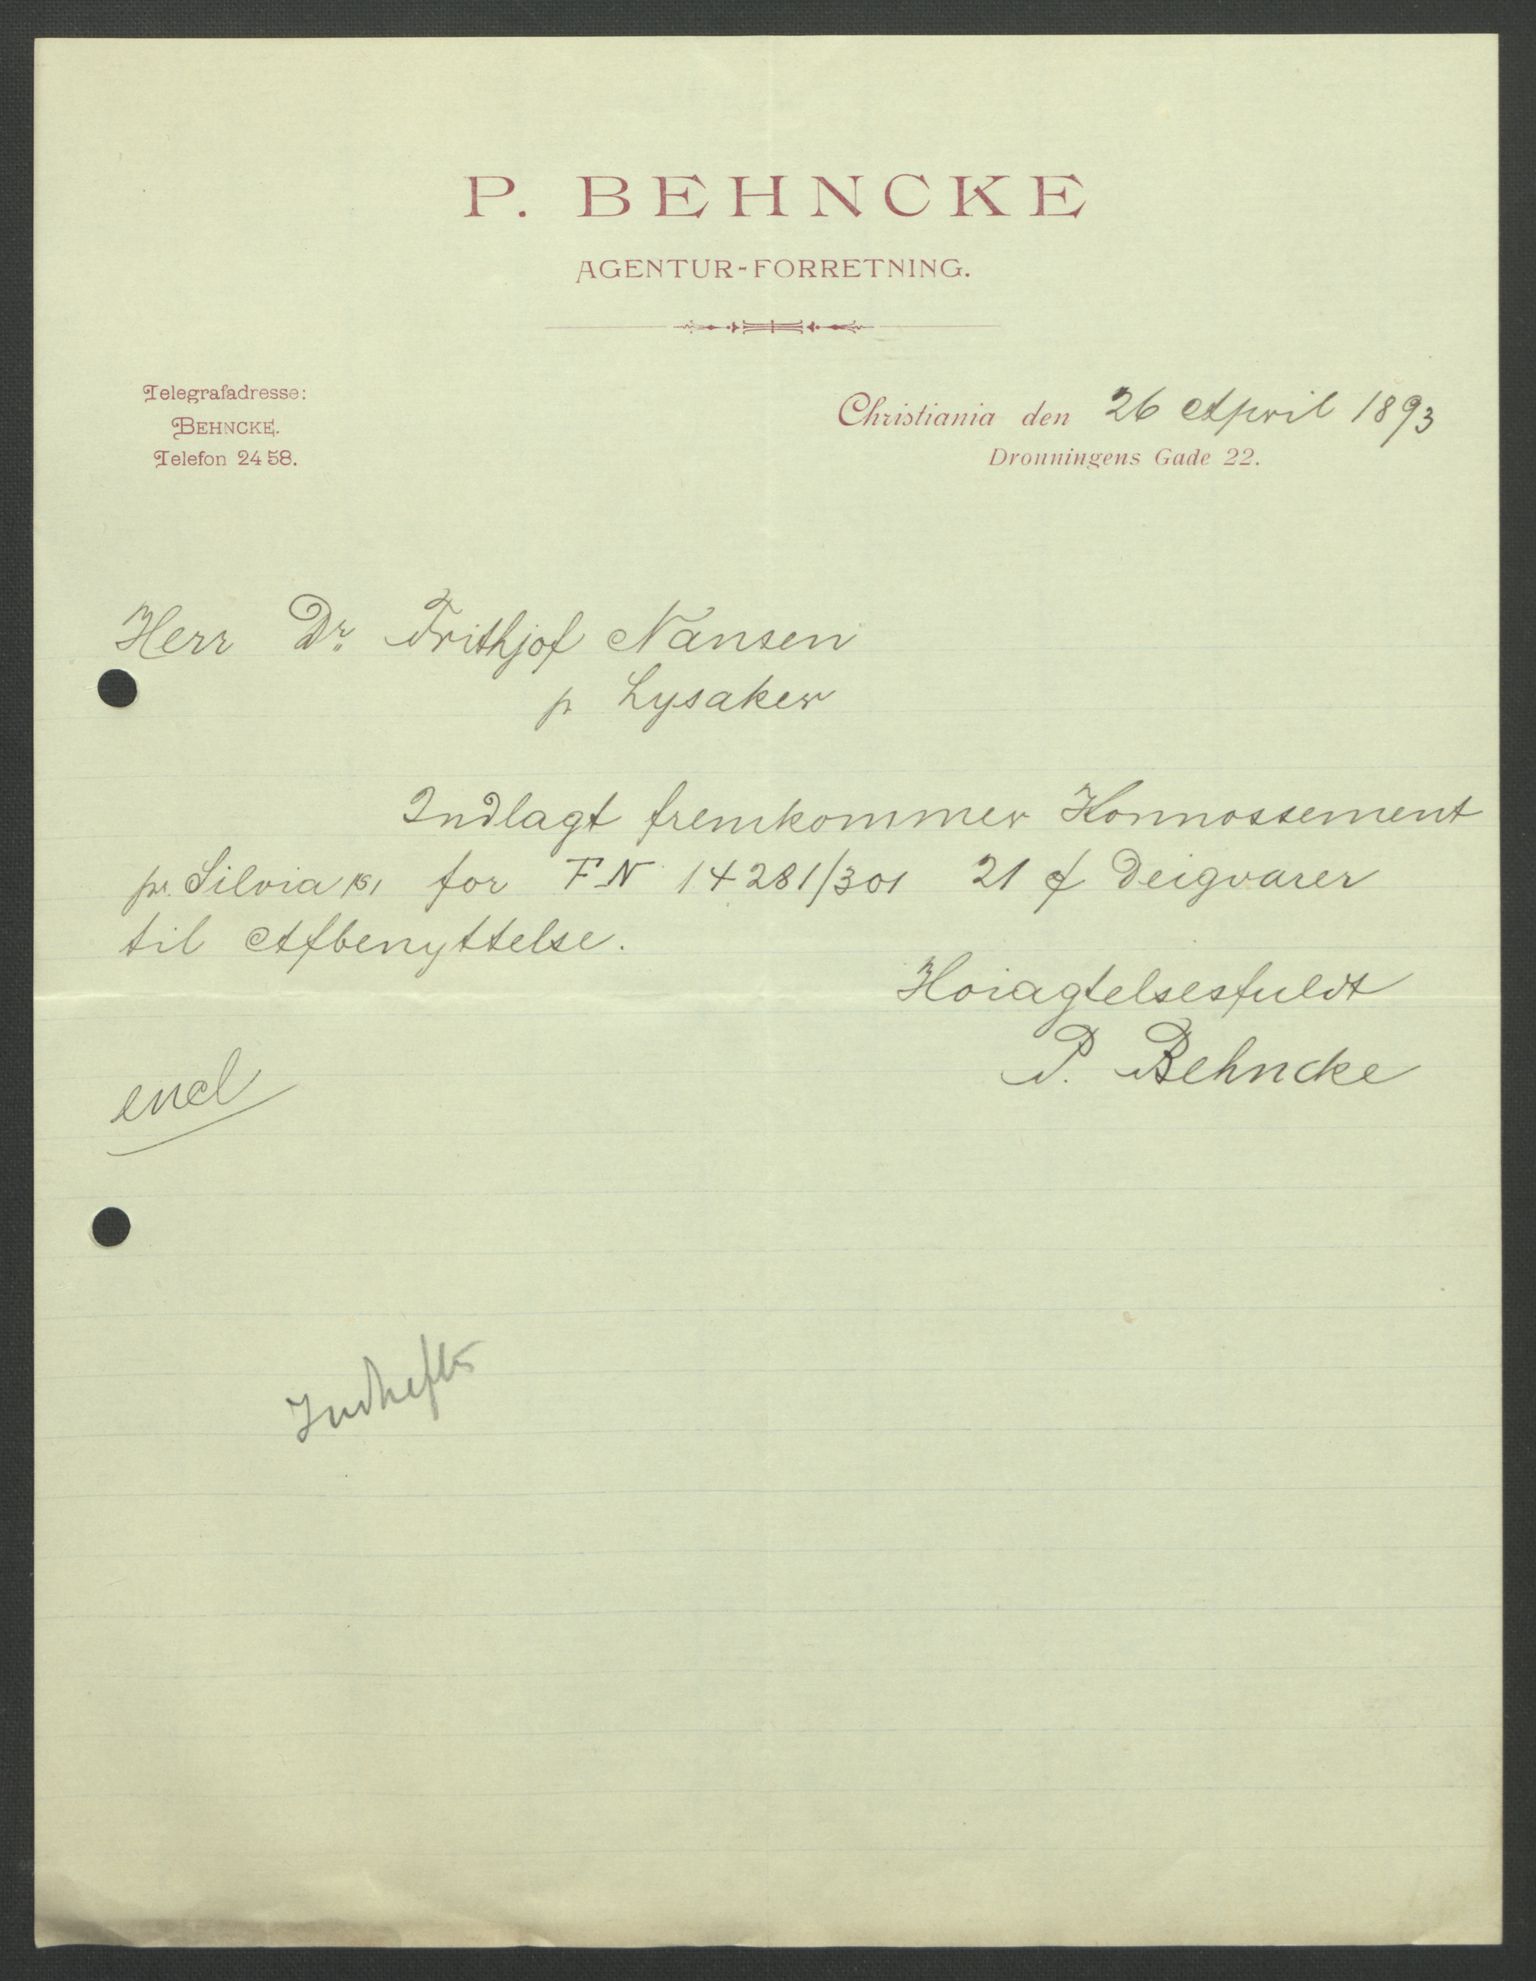 P. BEHNCKE
AGENTUR-FORRETNING.
Telegrafadresse:
BEHNCKE.
Telefon 2458.
Christiania den 26 April 1893
Dronningens Gade 22.
Herr Dr. Frithjof Nansen
p Lysaker
Indlagt fremkommer Konnossement
pr. Silvia for FN 14281/301 21 Deigvarer
til Afbenyttelse.
Hoiagtelsesfuldt
P. Behncke
encl
Indheft